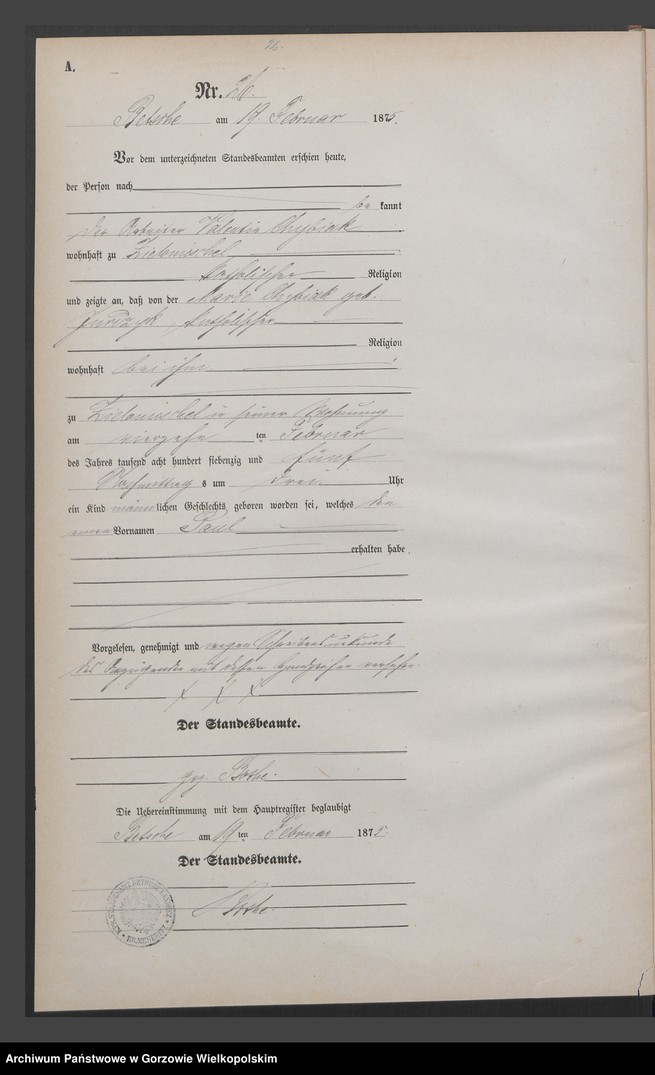 26.
A.
Nr. 26.
Betsche am 19. Februar 1875.
Vor dem unterzeichneten Standesbeamten erschien heute,
der Person nach
be kannt
Der Arbeiter Valentin Chybiak
wohnhaft zu Zielomischel
katholischer Religion
und zeigte an, daß von der Marie Chybiak geb.
katholischer
Religion
wohnhaft bei ihm
zu Zielomischel in seiner Wohnung
am vierzehn ten Februar
des Jahres tausend acht hundert siebenzig und fünf
Nachmittag s um drei Uhr
ein Kind männlichen Geschlechts geboren worden sei, welches den
einen Vornamen Paul
erhalten habe.
Vorgelesen, genehmigt und wegen Schreibensunkunde
des Anzeigenden mit dessen Handzeichen versehen.
X X X
Der Standesbeamte.
gez. Bothe.
Die Uebereinstimmung mit dem Hauptregister beglaubigt
Betsche am 19 ten Februar 1875
Der Standesbeamte.
Bothe.
Archiwum Państwowe w Gorzowie Wielkopolskim